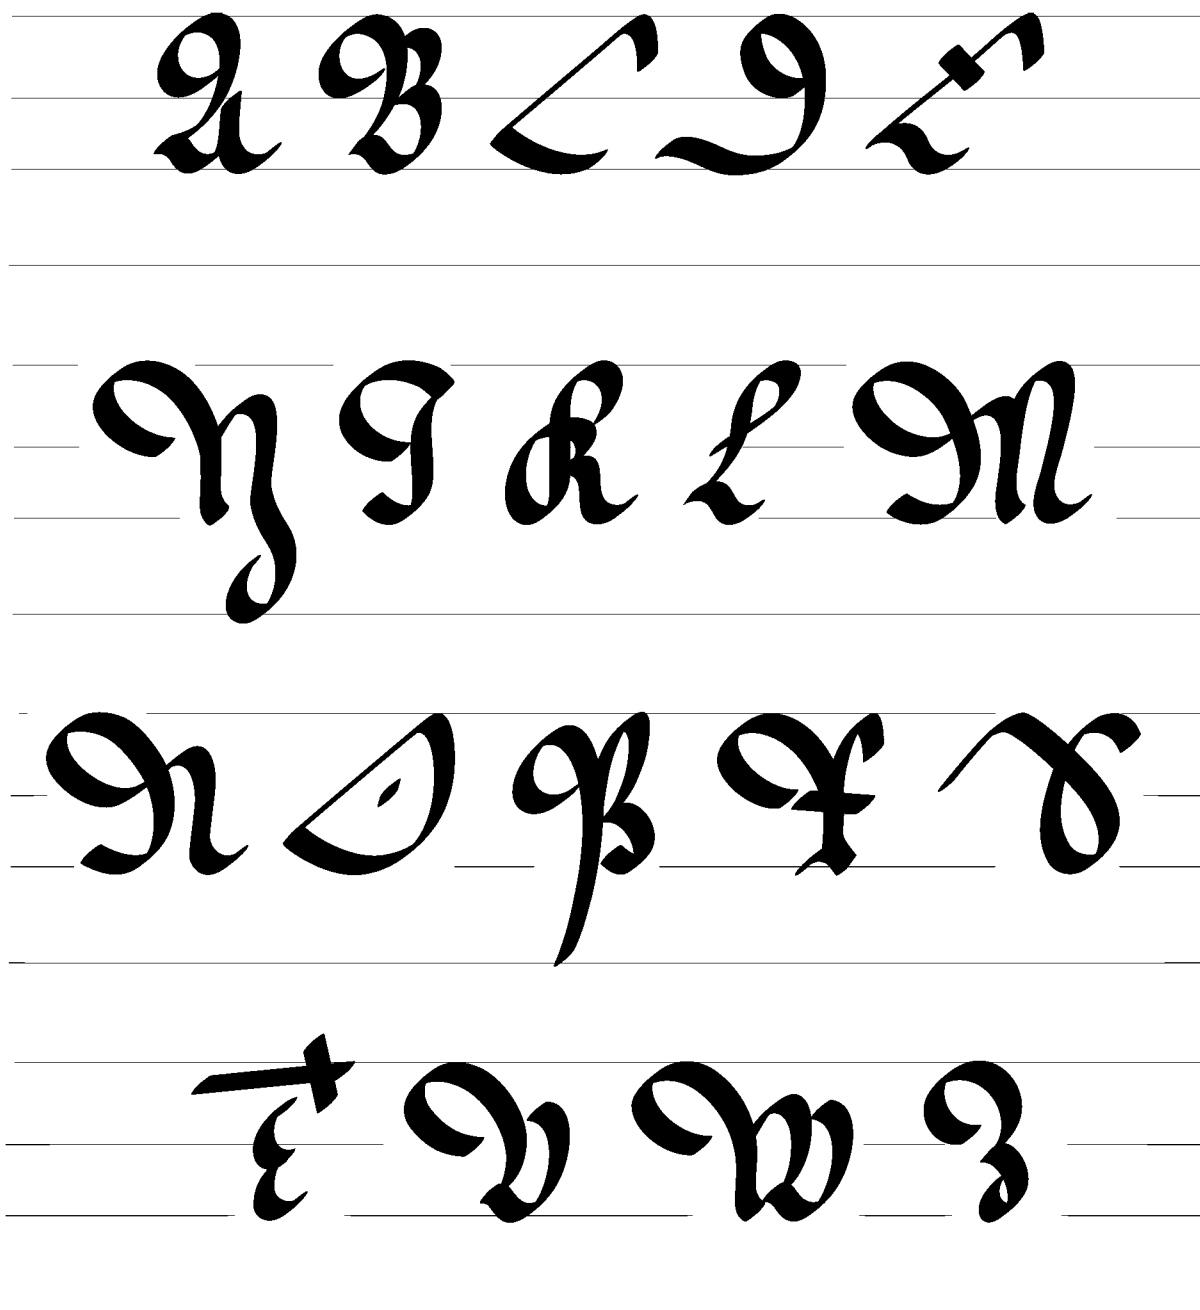 A B C D E
H I K L M
N O P R S
T V W Z